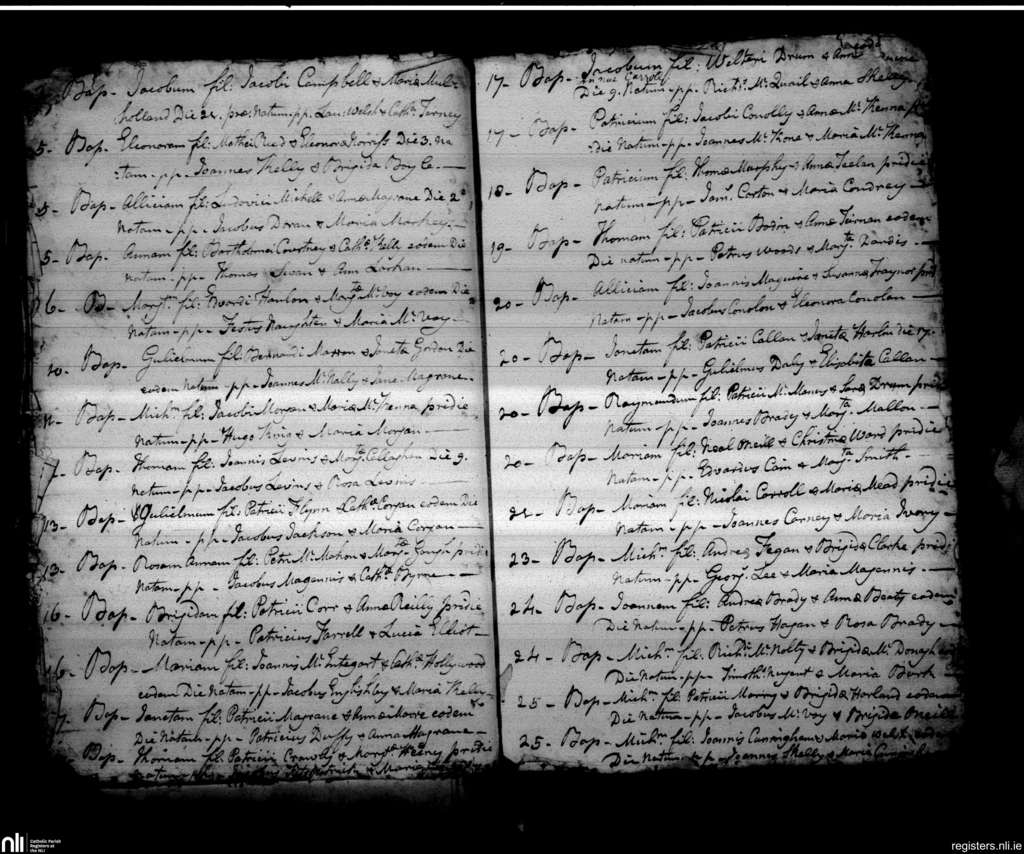 Bap- Jacobum fil: Jacobi Campbell & Maria Mul=
holland Die 21. præ: Natum-pp. Lau: Welsh & Cath: Torney
5- Bap- Eleonoram fil: Mathei Reed & Eleonora Norriss Die 3. na
=tam-pp- Joannes Kelly & Brigida
5- Bap- Alliciam fil: Ludovici Michell & Anna Magrane Die 2º
Natam-pp. Jacobus Doran & Maria
5- Bap. Annam fil: Bartholomei Courtney & Cath: eodem Die
natam-pp- Thomas & Ann
6- B- Mary fil: Edwardi Hanlon & Mary McVoy eodem Die
Natam-pp- Festus Naughten & Maria McVey
10- Bap- Gulielmum fil: Bernardi & Joneta Gordan Die
eodem natum-pp- Joannes McNally & Jane Magrane-
11- Bap- Michm fil: Jacobi Morgan & Maria McKenna pridie
Natum-pp- Hugo King & Maria Morgan
Bap- Thomam fil: Joannis Levins & Mary Callaghan Die 9.
Natum-pp- Jacobus Levins & Rosa Levins
13- Bap- Gulielmum fil: Patricii Flynn & Cath: Corgan eodem Die
Natum-pp- Jacobus Jackson & Maria Corgan
13- Bap- Rosam Annam fil: Petri McMahon & Mary Gough pridie
Natam-pp- Jacobus Magennis & Cath: Byrne
16- Bap- Brigidam fil: Patricii Corr & Anna Reilly pridie
Natam-pp- Patricius Farrell & Lucia Elliot-
16- Bap- Mariam fil: Joannis McEntegart & Cath: Hollywood
eodem Die Natam-pp- Jacobus Englishby & Maria
Bap- Janetam fil: Patricii Magrane & Anna Moore eodem
Die Natam-pp- Patricius Duffy & Anna Magrane-
Bap- Thomam fil: Patricii Crawly & Mary pridie
natum-pp- Fitzpatrick & Maria
17- Bap- Jacobum fil: Walteri Drum & Anna
Die 9. Natum-pp. Richd. McQuail & Anna Skelly
17- Bap- Patricium fil: Jacobi Conolly & Anna McKenna
Die Natum-pp- Joannes & Maria McKenna
18- Bap- Patricium fil: Thoma Murphy & Anna pridie
natum-pp- Jam: Corton & Maria
19- Bap- Thomam fil: Patricii & Anna Tiernan eodem
Die natum-pp- Petrus Woods & Mary
20- Bap- Alliciam fil: Joannis Maguire & Susanna Traynor prid
Natam-pp- Jacobus Conolon & Eleonora Conolan
20- Bap- Jonetam fil: Patricii Callan & Janeta Die 17-
Natam-pp- Gulielmus Daly & Elisabita Callan-
20- Bap- Raymundum fil: Patricii McManus & Sara Drum pridie
Natum-pp- Joannes Brady & Mary Mallon
20- Bap- Mariam fil: Neal Oneill & Christina Ward pridie
Natam-pp- Edvardus Cain & Mary Smith-
21- Bap- Mariam fil: Nicolai Carroll & Maria Mead pridie
Natam-pp- Joannes Carney & Maria Ivory-
23- Bap- Michm fil: Andrea Fegan & Brigida Clarke pridie
Natum-pp- Georg: Lee & Maria Magennis-
24- Bap- Joannem fil: Andrea Brady & Anna Beaty eodem
Die Natum-pp- Petrus Hagan & Rosa Brady-
24- Bap- Michm fil: Richd. McNolty & Brigida McDonagh
Die Natum-pp- Timoth: Nugent & Maria
25- Bap- Michm fil: Patricii & Brigida Harland eodem
Die Natum-pp- Jacobus McVoy & Brigida Oneill
25- Bap- Michm fil: Joannis Cunningham & Maria Welsh
Die Natum-pp- Joannes Skelly & Maria
nli
Catholic Parish
Registers at
the NLI
registers.nli.ie